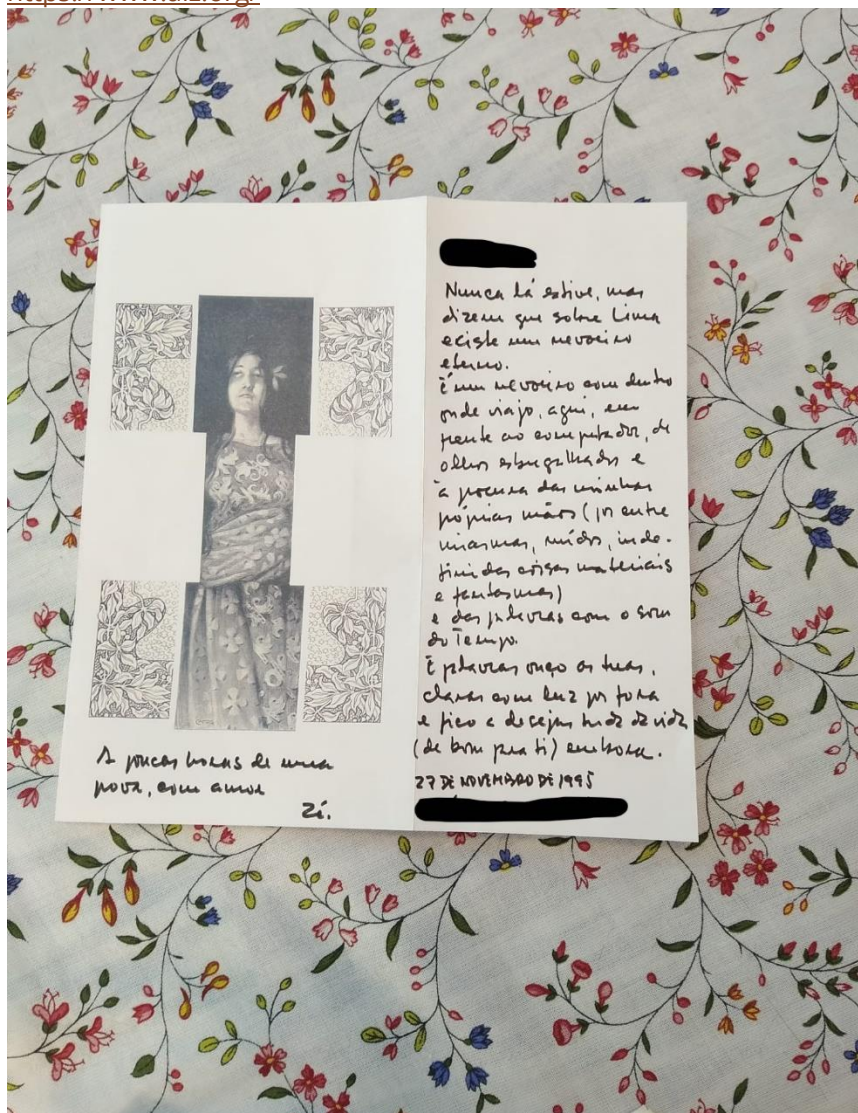 A poucas horas de uma
prova, com amor
Zi.
Nunca lá estive, mas
dizem que sobre Lima
existe um nevoeiro
eterno.
É um nevoeiro com dentro
onde viajo, aqui, em
frente ao computador, de
olhos esbugalhados e
à procura das minhas
próprias mãos (por entre
miasmas, ruídos, inde-
finidas coisas materiais
e fantasmas)
e das palavras com o som
do Tempo.
E palavras ouço as tuas,
claras com luz por fora
e fico a desejar tudo da vida
(de bom pra ti) embora.
27 DE NOVEMBRO DE 1995